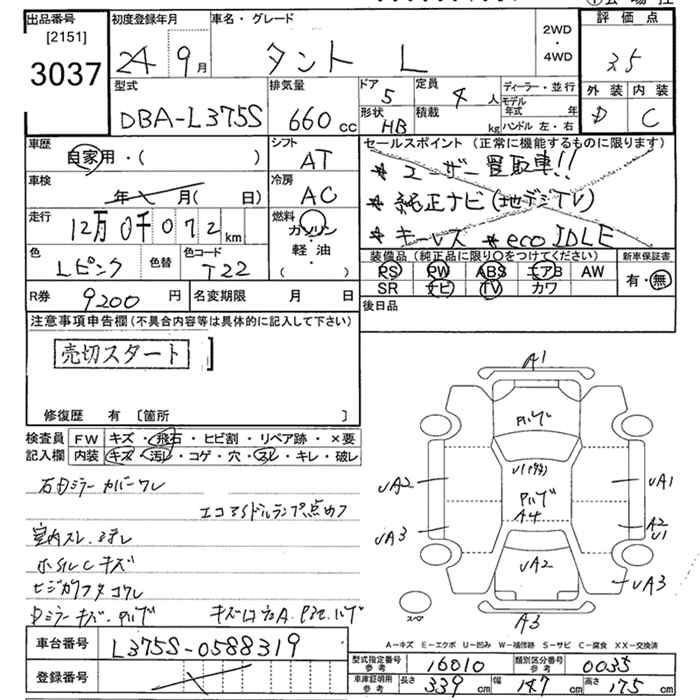 出品番号
[2151]
3037
初度登録年月
24 9月
車名・グレード
タント L
2WD
・
4WD
評価点
3.5
型式
DBA-L375S
排気量
660 cc
ドア
5
形状
HB
定員
4 人
積載
kg
ディーラー・並行
モデル年式 年
ハンドル 左・右
外装
D
内装
C
車歴
自家用・( )
シフト
AT
車検
年 月( 日)
冷房
AC
走行
12万0千072km
燃料
ガソリン
軽油
( ・ )
色
Lピンク
色替
色コード
T22
R券
9200円
名変期限 月 日
セールスポイント (正常に機能するものに限ります)
* ユーザー買取車!!
* 純正ナビ(地デジTV)
* キーレス * eco IDLE
装備品(純正品に限り○をつけてください)
PS PW ABS エアB AW
SR ナビ TV カワ
新車保証書
有・無
後日品
注意事項申告欄(不具合内容等は具体的に記入して下さい)
売切スタート
修復歴 有 [箇所 ]
検査員
記入欄
FW キズ・飛石・ヒビ割・リペア跡・×要
内装 キズ・汚レ・コゲ・穴・スレ・キレ・破レ
右Dミラーカバーワレ
エコアイドルランプ点めつ
室内スレ・ヨゴレ
ホイルCキズ
キズ
A1
UA2
UA3
UA1
A2
U1
UA3
A4
UA2
A3
スペア
A=キズ E=エクボ U=凹み W=補修跡 S=サビ C=腐食 XX=交換済
車台番号
L375S-0588319
登録番号
型式指定番号
参考
16010
類別区分番号
参考
0035
車庫証明用
参考
長さ 339cm
幅 147cm
高さ 175cm